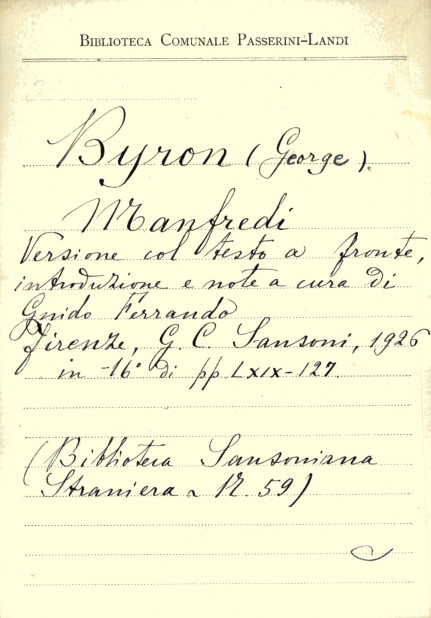 BIBLIOTECA COMUNALE PASSERINI-LANDI
Byron (George).
Manfredi
Versione col testo a fronte,
introduzione e note a cura di
Guido Ferrando
Firenze, G. C. Sansoni, 1926
in -16° di pp LXIX-127.
(Biblioteca Sansoniana
Straniera N. 59)